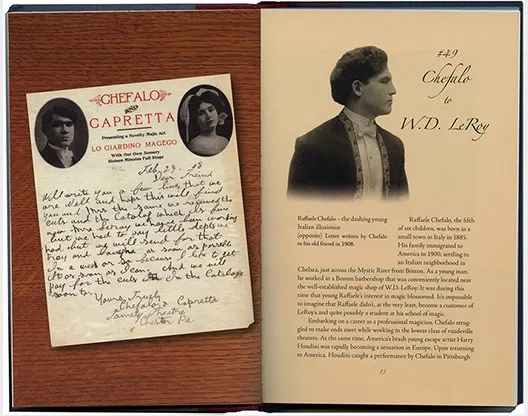 CHEFALO
AND
CAPRETTA
Presenting a Novelty Magic Act
LO GIARDINO MAGECO
With Our Own Scenery
Sixteen Minutes Full Stage
Feb 29. 08
Dear Friend
Will write you a few lines that we
are well and hope this will find
you and Mrs the same we received the
cuts and the Catalog which its fine
now Mr
but we had
had but we will send for that
tray and as soon as possible
in a week or so because I like to get
it as soon as I can. And we will
pay for the cuts in the Catalog
soon
Yours Truly
Chefalo & Capretta
Family Theatre
Chester Pa.
#49
Chefalo
to
W.D. LeRoy
Raffaele Chefalo – the dashing young
Italian illusionist
(opposite) Letter written by Chefalo
to his old friend in 1908.
Raffaele Chefalo, the fifth
of six children, was born in a
small town in Italy in 1885.
His family immigrated to
America in 1900, settling in
an Italian neighborhood in
Chelsea, just across the Mystic River from Boston. As a young man,
he worked in a Boston barbershop that was conveniently located near
the well-established magic shop of W.D. LeRoy. It was during this
time that young Raffaele's interest in magic blossomed. It's impossible
to imagine that Raffaele didn't, at the very least, become a customer of
LeRoy's and quite possibly a student at his school of magic.
Embarking on a career as a professional magician, Chefalo strug-
gled to make ends meet while working in the lowest class of vaudeville
theaters. At the same time, America's brash young escape artist Harry
Houdini was rapidly becoming a sensation in Europe. Upon returning
to America, Houdini caught a performance by Chefalo in Pittsburgh